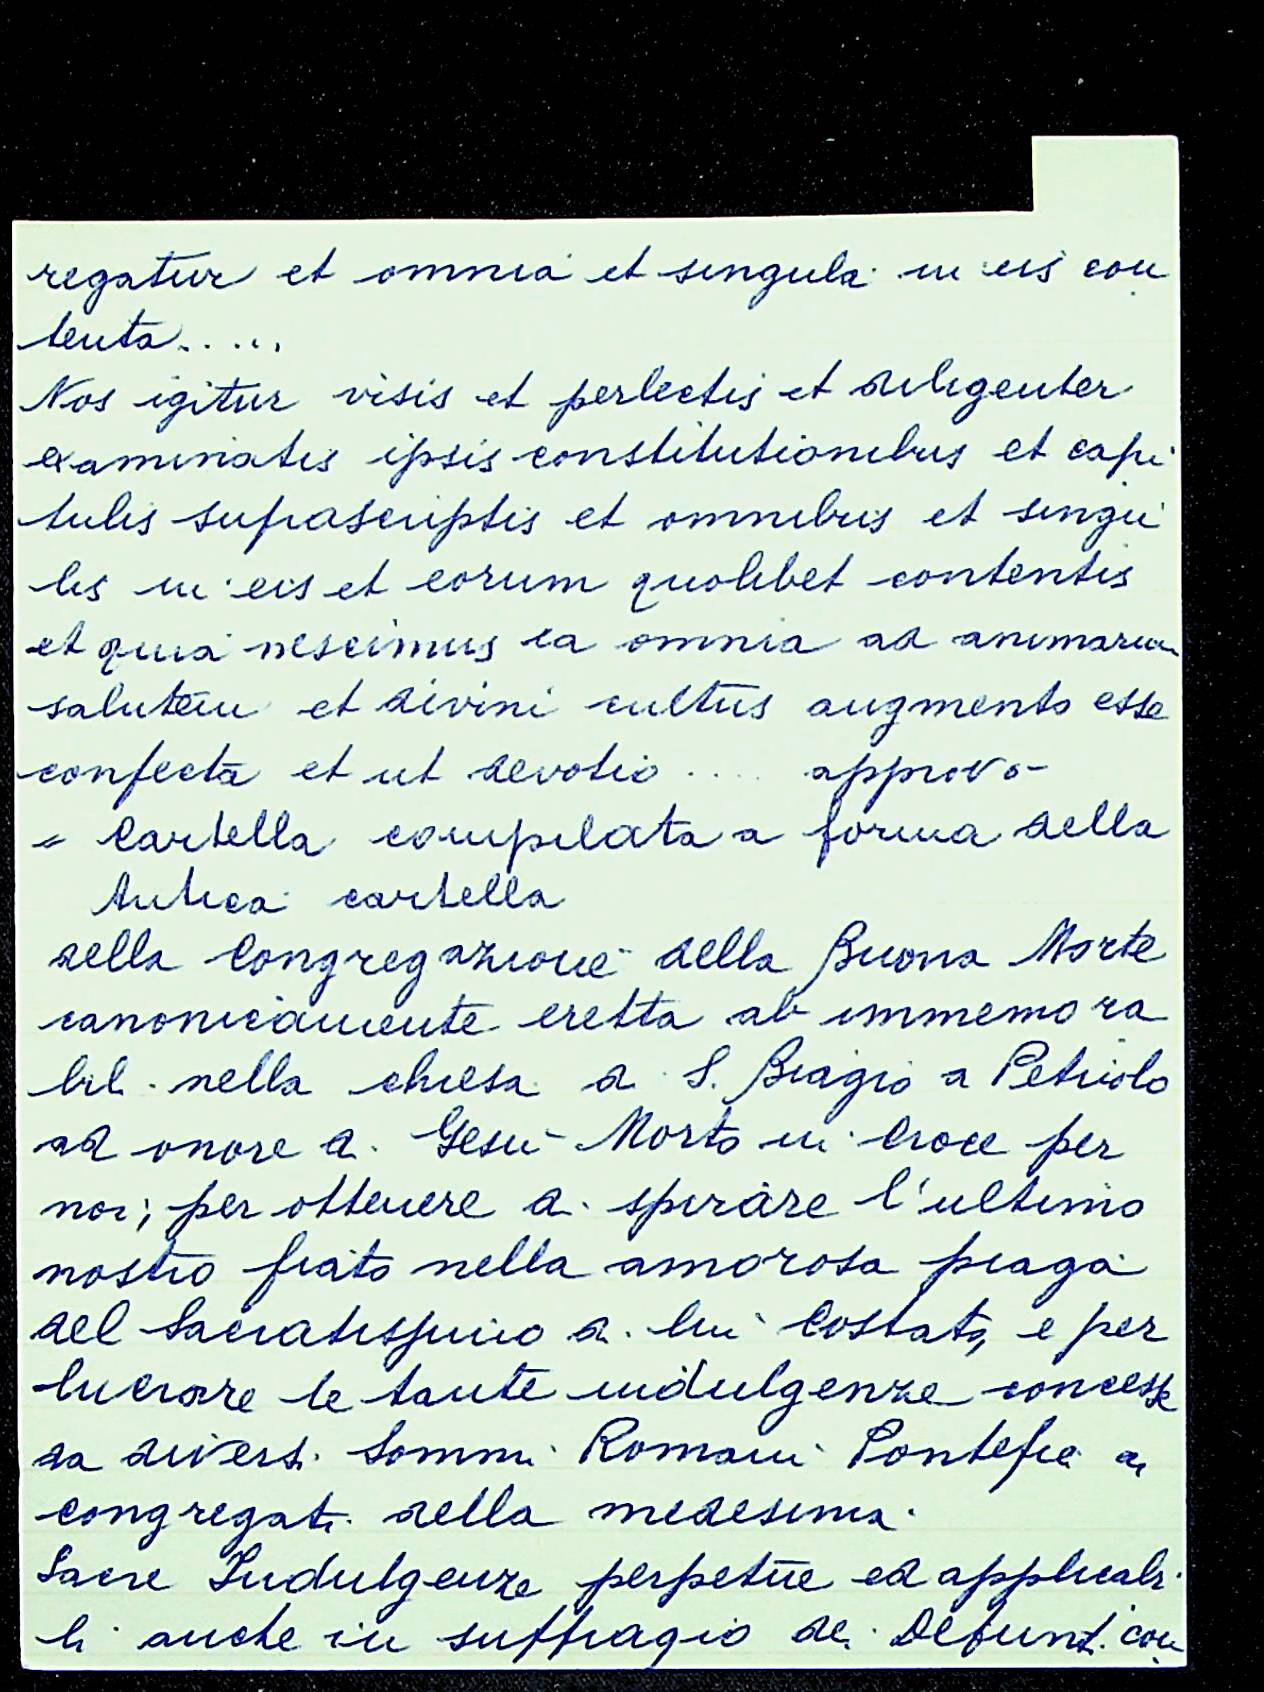 regatur et omnia et singula in eis con
tenta.....
Nos igitur visis et perlectis et diligenter
examinatis ipsis constitutionibus et capi
tulis suprascriptis et omnibus et singu
lis in eis et eorum quolibet contentis
et quia nescimus ea omnia ad animarum
salutem et divini cultus augmento esse
confecta et ut devotio .... approvo-
= Cartella compilata a forma della
Antica cartella
della Congregazione della Buona Morte
canonicamente eretta ab immemora
bili nella chiesa di S. Biagio a Petriolo
ad onore di Gesù Morto in Croce per
noi; per ottenere di spirare l'ultimo
nostro fiato nella amorosa piaga
del Sacratissimo di lui Costato, e per
lucrare le tante indulgenze concesse
da diversi Sommi Romani Pontefici ai
congregati della medesima.
Sacre Indulgenze perpetue ed applicabi
li anche in suffragio dei Defunti con